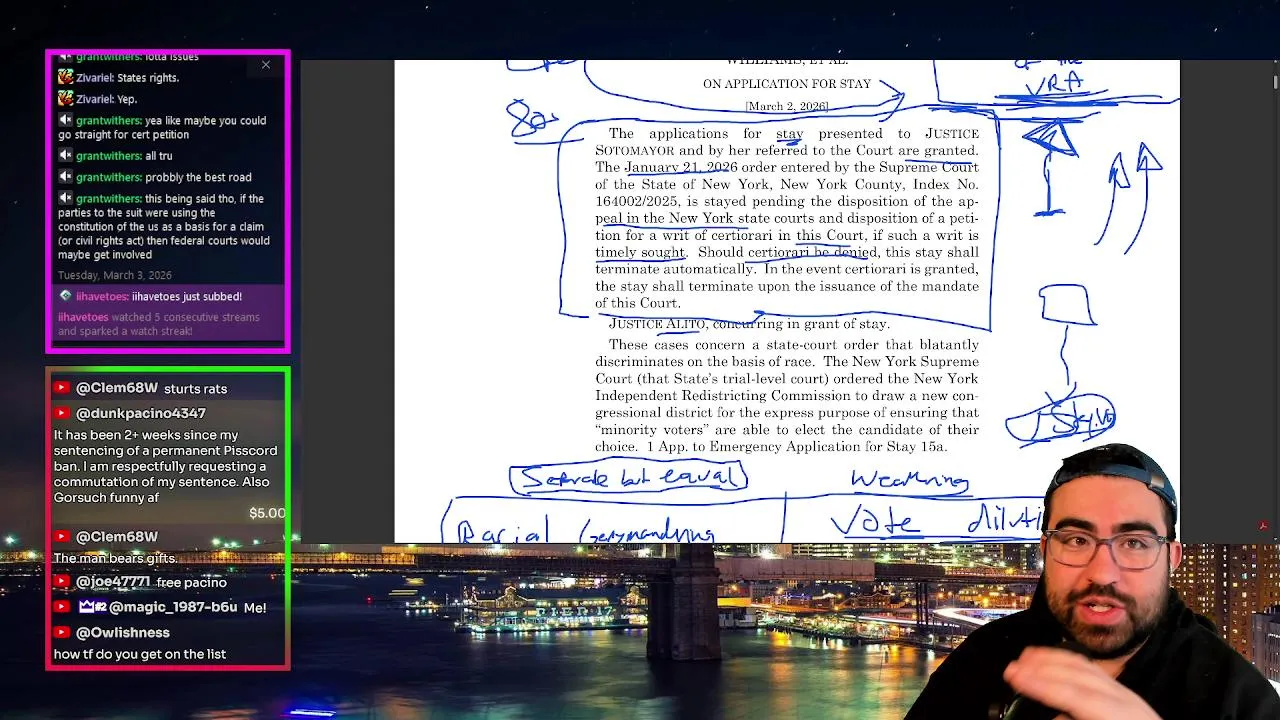 grantwithers: lotta issues
Zivariel: States rights.
Zivariel: Yep.
grantwithers: yea like maybe you could
go straight for cert petition
grantwithers: all tru
grantwithers: probbly the best road
grantwithers: this being said tho, if the
parties to the suit were using the
constitution of the us as a basis for a claim
(or civil rights act) then federal courts would
maybe get involved
Tuesday, March 3, 2026
iihavetoes: iihavetoes just subbed!
iihavetoes watched 5 consecutive streams
and sparked a watch streak!
@Clem68W sturts rats
@dunkpacino4347
It has been 2+ weeks since my
sentencing of a permanent Pisscord
ban. I am respectfully requesting a
commutation of my sentence. Also
Gorsuch funny af
$5.00
@Clem68W
The man bears gifts.
@joe47771 free pacino
#2 @magic_1987-b6u Me!
@Owlishness
how tf do you get on the list
WILLIAMS, ET AL.
ON APPLICATION FOR STAY
[March 2, 2026]
of the
VRA
The applications for stay presented to JUSTICE
SOTOMAYOR and by her referred to the Court are granted.
The January 21, 2026 order entered by the Supreme Court
of the State of New York, New York County, Index No.
164002/2025, is stayed pending the disposition of the ap-
peal in the New York state courts and disposition of a peti-
tion for a writ of certiorari in this Court, if such a writ is
timely sought. Should certiorari be denied, this stay shall
terminate automatically. In the event certiorari is granted,
the stay shall terminate upon the issuance of the mandate
of this Court.
JUSTICE ALITO, concurring in grant of stay.
These cases concern a state-court order that blatantly
discriminates on the basis of race. The New York Supreme
Court (that State's trial-level court) ordered the New York
Independent Redistricting Commission to draw a new con-
gressional district for the express purpose of ensuring that
"minority voters" are able to elect the candidate of their
choice. 1 App. to Emergency Application for Stay 15a.
Separate but equal
Racial Gerrymandering
Vote